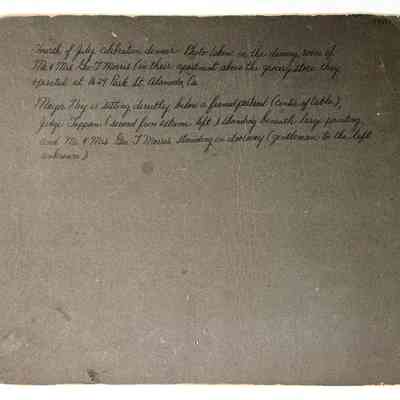 Fourth of July celebration dinner. Photo taken in the dining room of
Mr. & Mrs. Geo. T. Morris (in their apartment above the grocery store they
operated at 1629 Park St. Alameda, Ca.
Mayor Noy is sitting directly below a framed portrait (center of table),
Judge Tappan (second from extreme left) standing beneath large painting,
and Mr. & Mrs. Geo. T. Morris standing in doorway (gentleman to the left
unknown.)